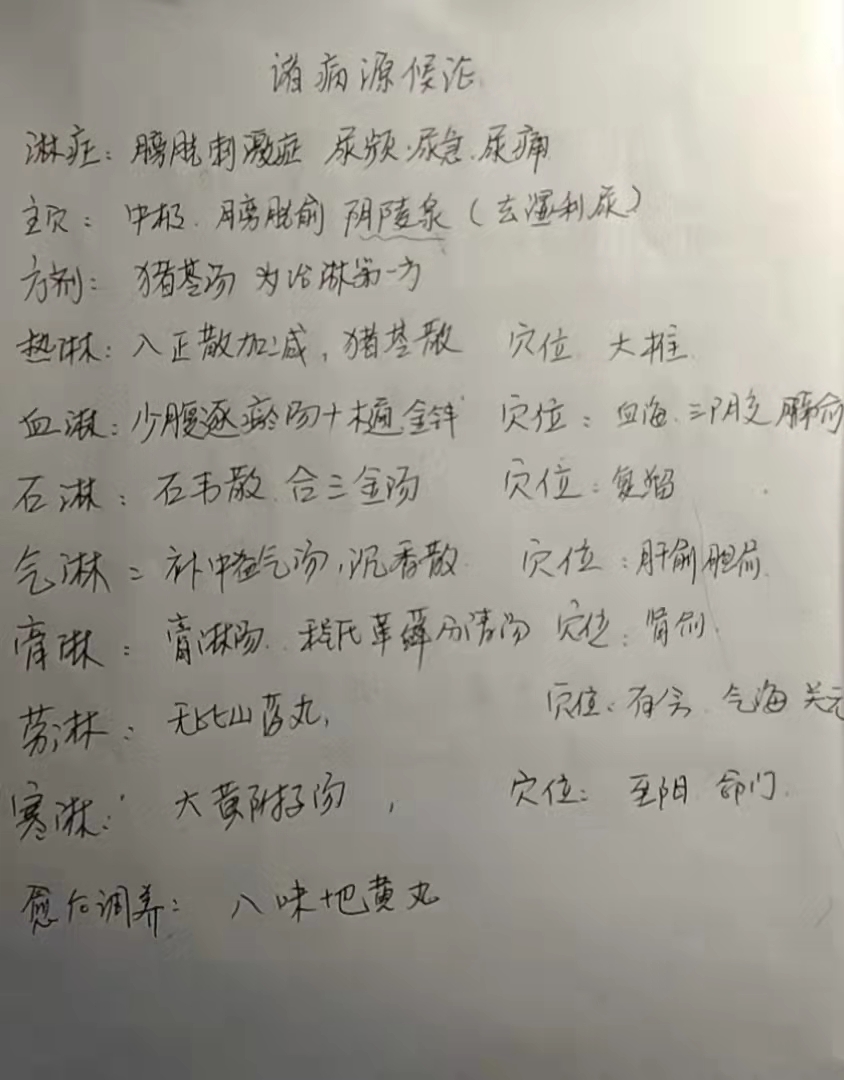 诸病源候论
淋症：膀胱刺激症 尿频.尿急.尿痛
主穴：中极.膀胱俞 阴陵泉（去湿利尿）
方剂：猪苓汤 为治淋第一方
热淋：八正散加减，猪苓散 穴位 大椎
血淋：少腹逐瘀汤+木通.金钱 穴位：血海.三阴交 膈俞
石淋：石韦散.合三金汤 穴位：复溜
气淋：补中益气汤，沉香散. 穴位：肝俞胆俞.
膏淋：膏淋汤.程氏萆薢分清汤 穴位：肾俞.
劳淋：无比山药丸， 穴位： 气海 关元
寒淋： 大黄附子汤， 穴位：至阳 命门.
愈后调养：八味地黄丸